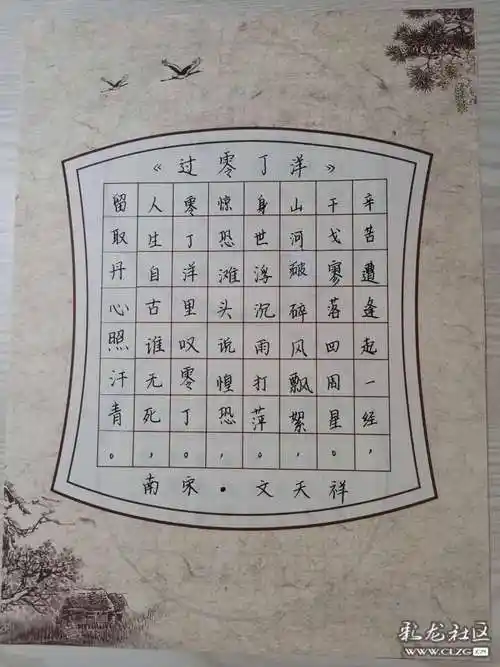 《过零丁洋》
辛苦遭逢起一经，
干戈寥落四周星。
山河破碎风飘絮，
身世浮沉雨打萍。
惊恐滩头说惶恐，
零丁洋里叹零丁。
人生自古谁无死，
留取丹心照汗青。
南宋·文天祥
彩龙社区
WWW.CLZG.CN